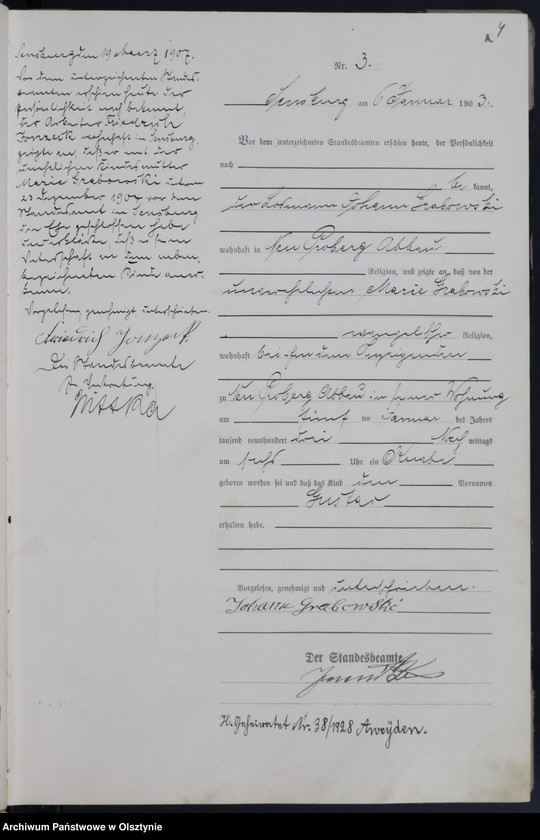 A. 4
Nr. 3.
Sensburg am 6 Januar 1903.
Vor dem unterzeichneten Standesbeamten erschien heute, der Persönlichkeit
nach
be kannt,
der Losmann Johann Grabowski
wohnhaft in Neu Proberg Abbau
Religion, und zeigte an, daß von der
unverehelichten Marie Grabowski
evangelischer Religion,
wohnhaft bei ihm dem Anzeigenden
zu Neu Proberg Abbau in seiner Wohnung
am fünf ten Januar des Jahres
tausend neunhundert drei Nach mittags
um sechs Uhr ein Knabe
geboren worden sei und daß das Kind den Vornamen
Gustav
erhalten habe.
Vorgelesen, genehmigt und unterschrieben.
Johann Grabowski
Der Standesbeamte
H. Geheiratet Nr. 38/1928 Aweyden.
Sensburg den 19 Maerz 1907.
Vor dem unterzeichneten Standes-
beamten erschien heute der
Persönlichkeit nach bekannt,
der Arbeiter Friedrich
wohnhaft in Sensburg,
zeigte an, daß er mit der
unehelichen Kindesmutter
Marie Grabowski
23 Dezember 1904 vor dem
Standesamt in Sensburg
die Ehe geschlossen habe
und erklärte, daß er seine
Vaterschaft zu dem neben-
bezeichneten Kinde aner-
kenne.
Vorgelesen genehmigt unterschrieben
Friedrich
Der Standesbeamte
In Vertretung
Archiwum Państwowe w Olsztynie